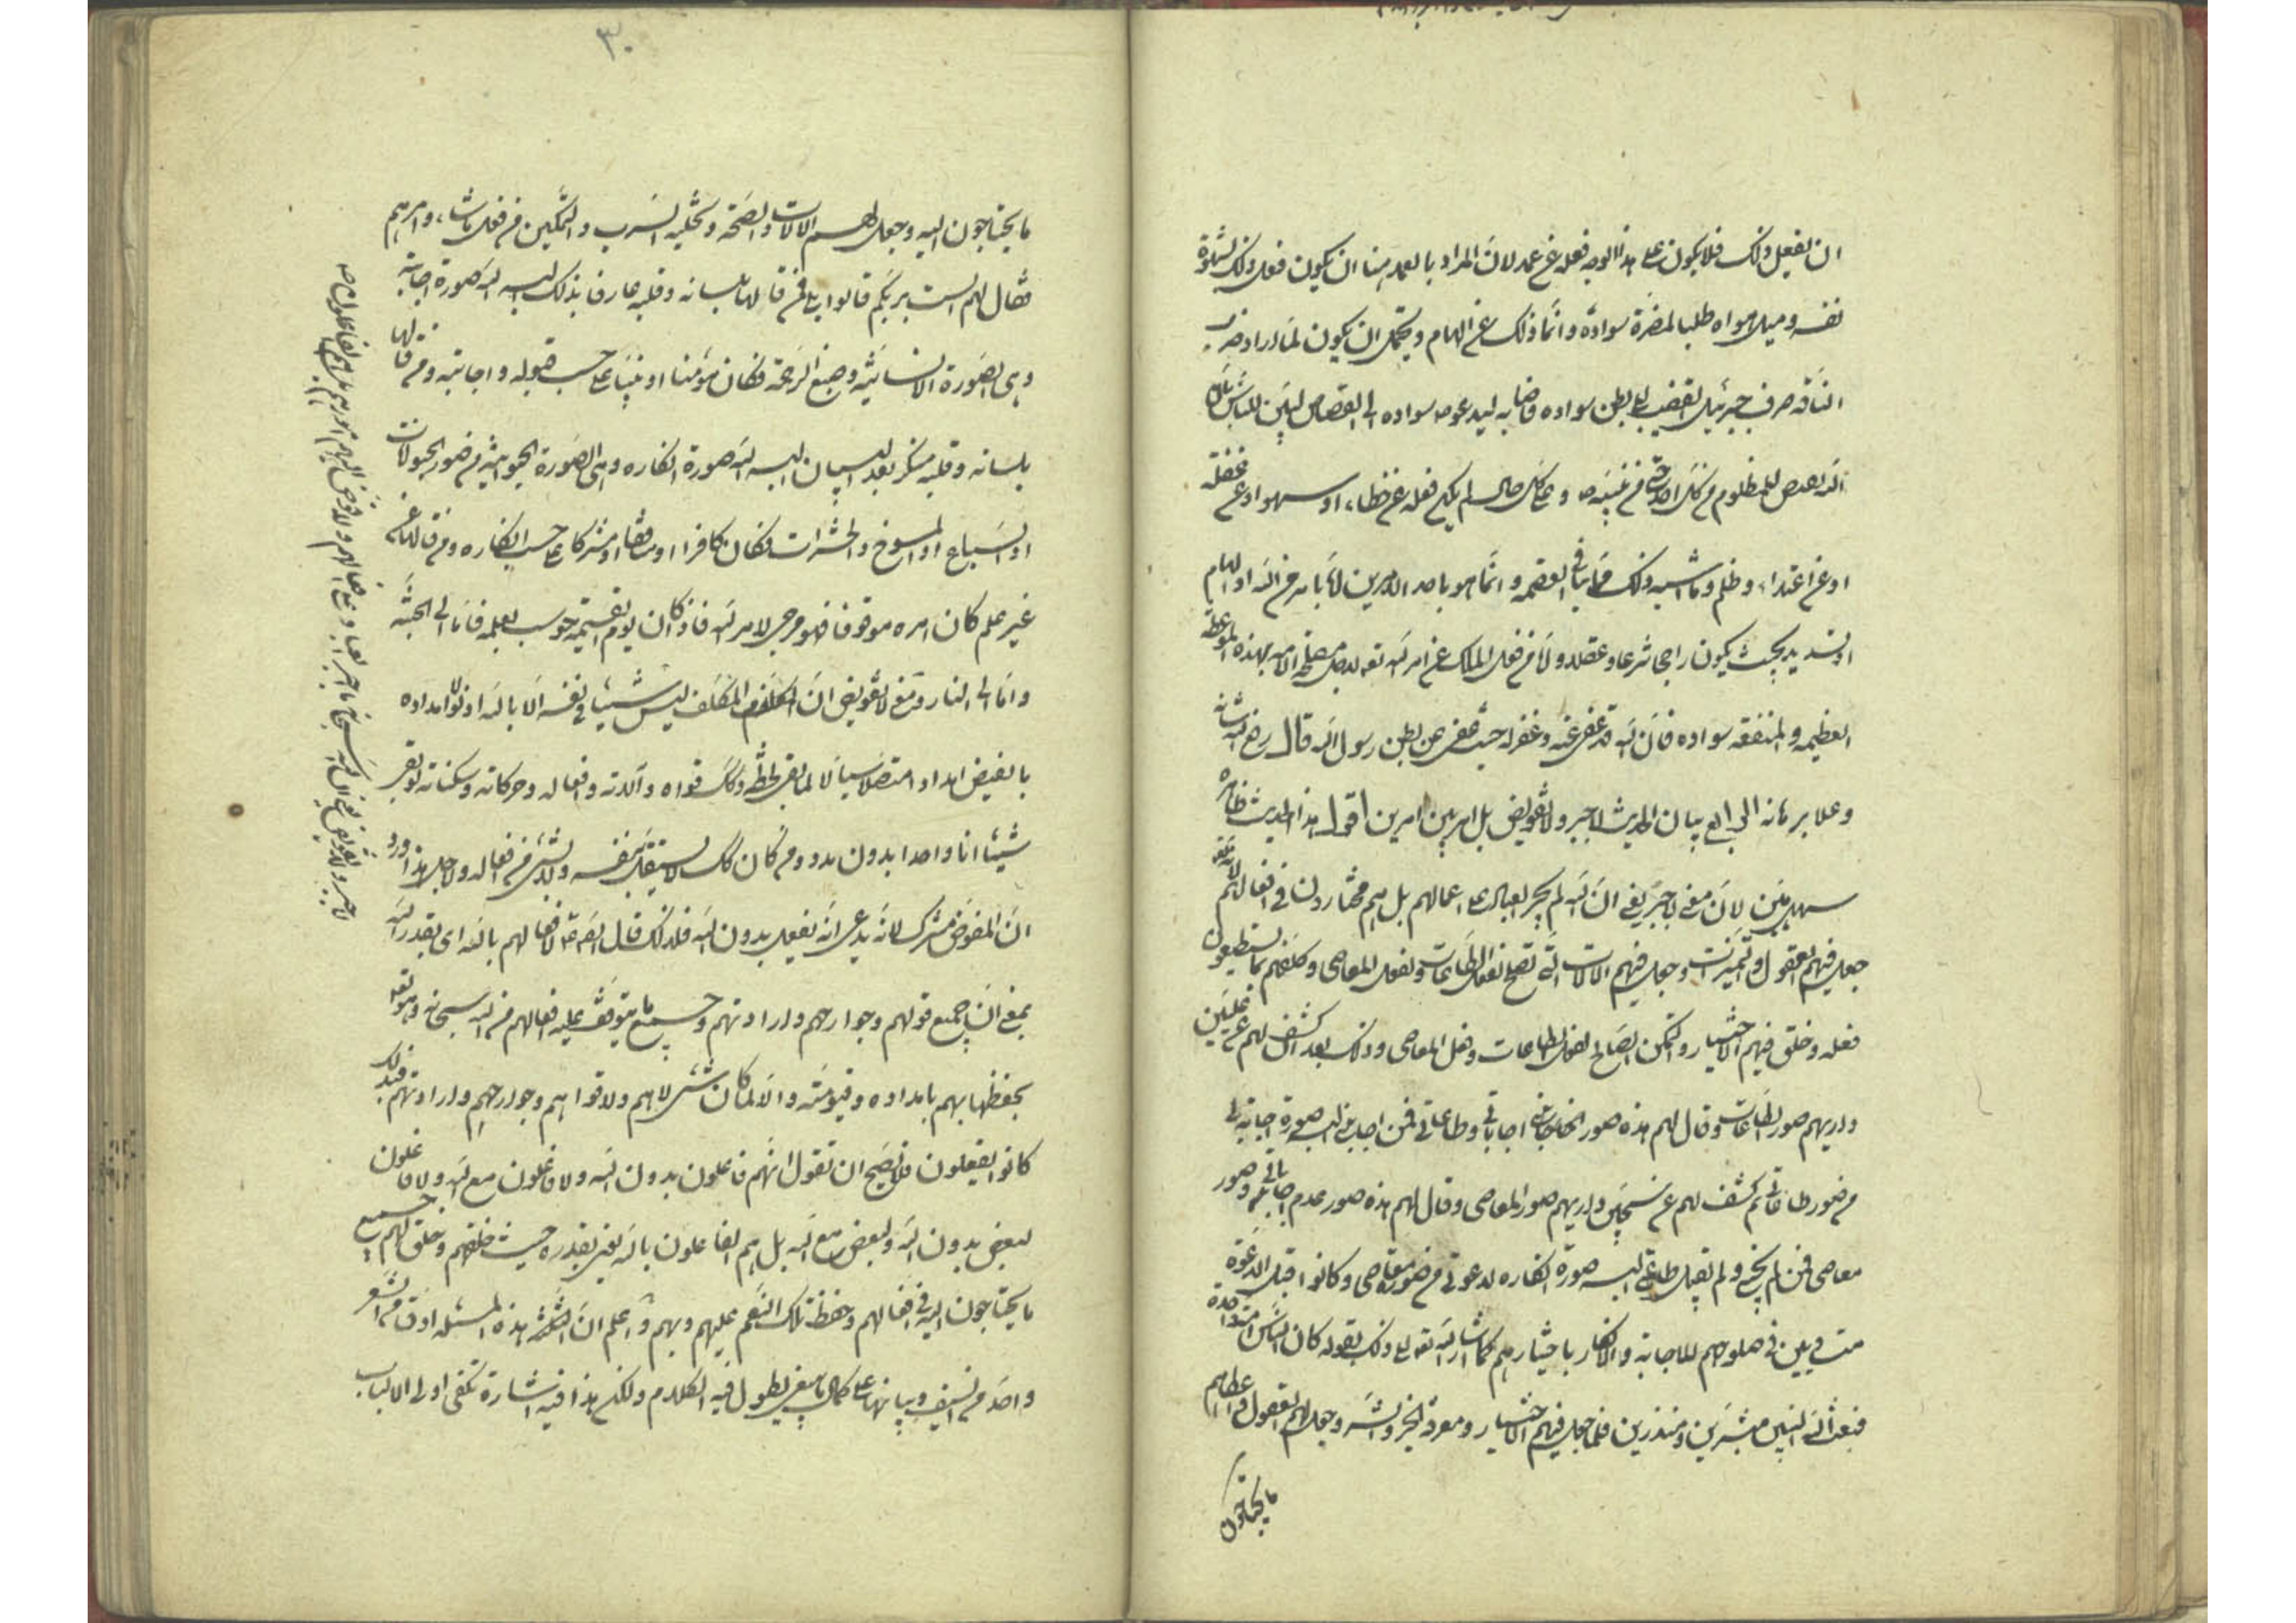 ان يفعل ذلك فلا يكون على هذا الوجه فعله عن عمد لان المراد بالعمد هنا ان يكون فعل ذلك لشهوة
نفسه وميل هواه طلبا لمضرة سوادة وانما ذلك عن الهام ويحتمل ان يكون لما اراد ضرب
الناقة صرف جبرئيل القضيب الى بطن سواده فاصابه ليدعو سواده الى القصاص ليبين للناس
الله يقتص للمظلوم من كل احد حتى من نبيه ص وعلى كل حال لم يكن فعله عن خطاء او سهو او عن غفلة
او عن اعتداء وظلم وما اشبه ذلك مما ينافي العصمه وانما هو باحد الامرين اما بامر من الله او الهام
او تسديد بحيث يكون راجحا شرعا وعقلا ولا من فعل الملك عن امر الله تعه لاجل مصلحة الامه بهذه الموعظة
العظيمه ولمنفعة سواده فان الله قد عفى عنه وغفر له حيث عفى عن بطن رسول الله قال رفع الله شانه
وعلا برهانه الى الرابع بيان الحديث لا جبر ولا تفويض بل امر بين امرين اقول هذا الحديث ظاهره
سهل بين لان معنى لا جبر يعني ان الله لم يجبر العباد على اعمالهم بل هم مختارون في افعالهم لانه تعه
جعل فيهم العقول والتميزات وجعل فيهم الالات التي تصلح لفعل الطاعات ولفعل المعاصي وكلفهم بما يستطيعون
فعله وخلق فيهم الاختيار والتمكن الصالح لفعل الطاعات وفعل المعاصي وذلك بعد ان كشف لهم عن عليين
واريهم صور الطاعات وقال لهم هذه صور اجاباتي وطاعاتي فمن اجابني البسه صورة اجابته لي
من صور طاعاتي ثم كشف لهم عن سجين واريهم صور المعاصي وقال لهم هذه صور عدم اجابتي وصور
معاصي فمن لم يجبني ولم يقبل طاعتي البسه صورة انكاره لدعوتي من صور معاصي وكانوا قبل الدعوة
متساويين في صلوحهم للاجابة والانكار باختيارهم كما اشار الله تعه الى ذلك بقوله كان الناس امة واحدة
فبعث الله النبيين مبشرين ومنذرين فلما جعل فيهم الاختيار ومعرفة الخير والشر وجعل لهم العقول واعطاهم
ما يحتاجون
٣٠
ما يحتاجون اليه وجعل لهم الالات والصحة وتخلية السرب والتمكين من فعل ما شاء وامرهم
فقال لهم الست بربكم قالوا بلى فمن قالها بلسانه وقلبه عارف بذلك البسه الله صورة اجابته
وهي الصورة الانسانيه وصبغ الرحمة فكان مؤمنا او نبيا على حسب قبوله واجابته ومن قالها
بلسانه وقلبه منكر بعد البيان البسه الله صورة انكاره وهي الصورة الحيوانية من صور الحيوانات
او السباع او المسوخ والحشرات فكان كافرا او منافقا او مشركا على حسب انكاره ومن قالها عن
غير علم كان امره موقوفا فهو مرجى لامر الله فاذا كان يوم القيمة حوسب بعلمه فاما الى الجنة
واما الى النار ومعنى لا تفويض ان المكلف ليس شيئا في نفسه الا بالله اذ لولا امداده
بالفيض امدادا متصلا سيالا لما بقي لحظة وكل قواه وآلاته وافعاله وحركاته وسكناته لو بقي
شيئا انا واحدا بدون مدد ومن كان كك لا يستقل بنفسه ولا بشئ من افعاله ولاجل هذا ورد
ان المفوض مشرك لانه يدعي انه يفعل بدون الله فلذلك قال افعالهم بالله اي بقدر الله
بمعنى ان جميع قواهم وجوارحهم وارادتهم وجميع ما يتوقف عليه افعالهم من الله سبحانه وهو تعه
يحفظها بهم بامداده وقيوميته والا لما كان شئ لا هم ولا قواهم وجوارحهم وارادتهم فبذلك
كانوا يفعلون فلا يصح ان تقول انهم فاعلون بدون الله ولا فاعلون مع الله ولا فاعلون
لبعض بدون الله ولبعض مع الله بل هم الفاعلون بالله يعني بقدره حيث خلقهم وخلق لهم جميع
ما يحتاجون اليه في افعالهم وحفظ تلك النعم عليهم وبهم واعلم ان هذه المسئله ادق من الشعر
واحد من السيف وبيانها على كمال ما ينبغي يطول فيه الكلام ولكن هذا فيه اشارة تكفي اولي الالباب